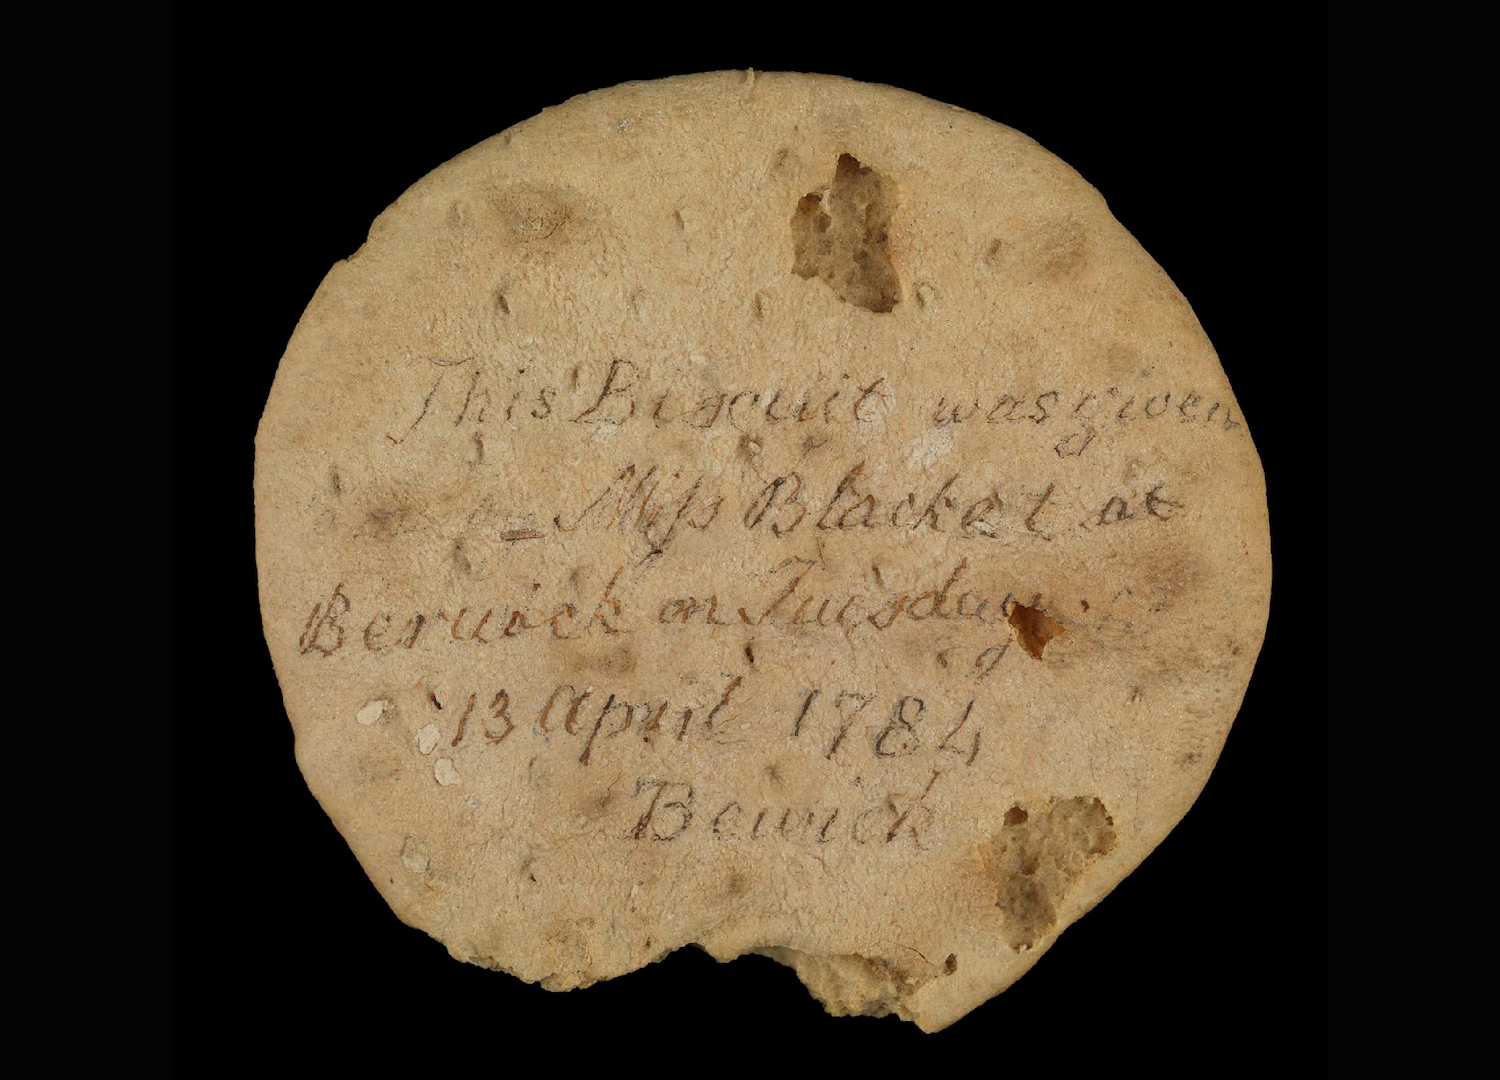 This Biscuit was given
Miss Blacket at
Berwick on Tuesday
13 april 1784
Bewick